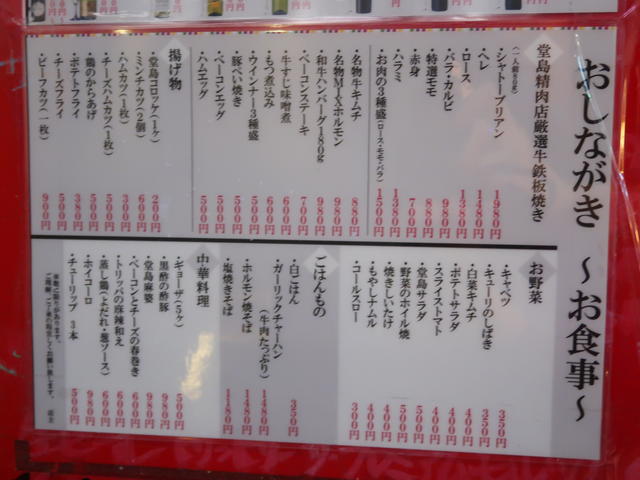 おしながき ～お食事～
堂島精肉店厳選牛鉄板焼き
(一人前80g)
・シャトーブリアン 1980円
・ヘレ 1480円
・ロース 1380円
・バラ・カルビ 980円
・特選モモ 880円
・赤身 700円
・ハラミ 1380円
・お肉の3種盛(ロース・モモ・バラ) 1500円
・名物牛キムチ 880円
・名物MIXホルモン 980円
・和牛ハンバーグ180g 980円
・ベーコンステーキ 700円
・牛すじ味噌煮 600円
・もつ煮込み 600円
・ウインナー3種盛 500円
・豚ぺい焼き 500円
・ベーコンエッグ 500円
・ハムエッグ 500円
揚げ物
・堂島コロッケ(1ケ) 200円
・ミンチカツ(2個) 600円
・ハムカツ(1枚) 300円
・チーズハムカツ(1枚) 500円
・鶏のからあげ 500円
・ポテトフライ 380円
・チーズフライ 500円
・ビーフカツ(一枚) 900円
お野菜
・キャベツ 350円
・キューリのしばき 350円
・白菜キムチ 400円
・ポテトサラダ 400円
・スライストマト 400円
・堂島サラダ 500円
・野菜のホイル焼 500円
・焼きしいたけ 400円
・もやしナムル 400円
・コールスロー 300円
ごはんもの
・白ごはん 250円
・ガーリックチャーハン
(牛肉たっぷり) 1480円
・ホルモン焼そば 1480円
・塩焼きそば 1180円
中華料理
・ギョーザ(5ヶ) 500円
・黒酢の酢豚 980円
・堂島麻婆 980円
・ベーコンとチーズの春巻き 600円
・トリッパの麻辣和え 600円
・蒸し鶏(よだれ・葱ソース) 600円
・ホイコーロ 980円
・チューリップ 3本 500円
ご理解、ご了承の程宜しくお願い致します。 店主